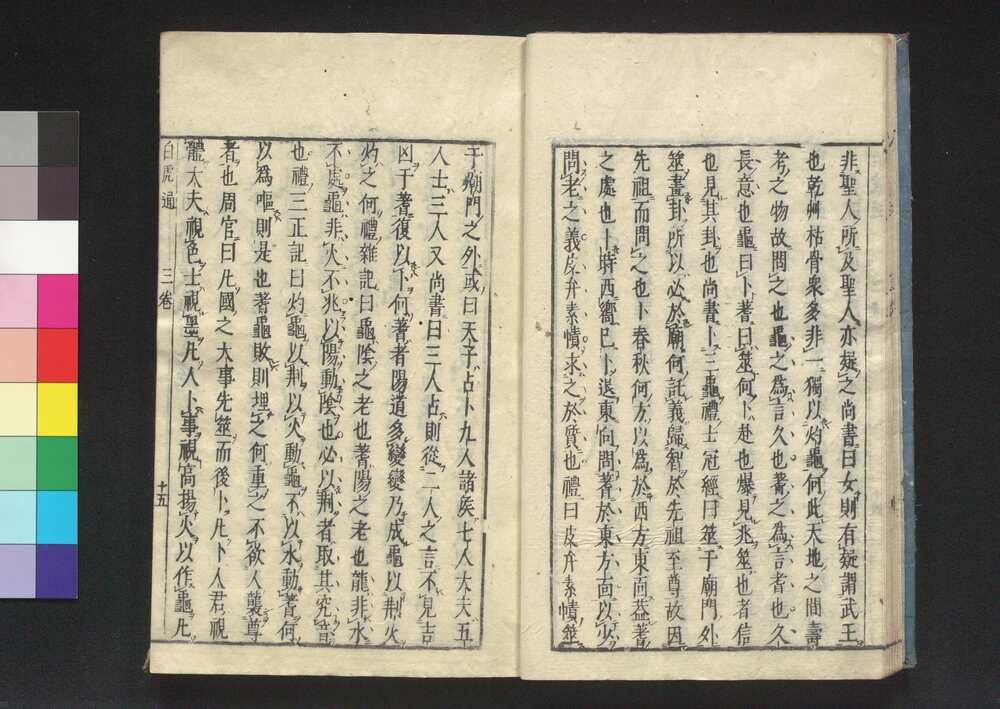 非聖人所及聖人亦疑之尚書曰女則有疑謂武王
也乾艸枯骨衆多非一獨以灼龜何此天地之間壽
考之物故問之也龜之為言久也蓍之為言耆也久
長意也龜曰卜蓍曰筮何卜赴也爆見兆筮也者信
也見其卦也尚書卜三龜禮士冠經曰筮于廟門外
筮畫卦所以必於廟何託義歸智於先祖至尊故因
先祖而問之也卜春秋何方以為於西方東面蓋蓍
之處也卜時西嚮已卜退東向問蓍於東方面以少
問老之義皮弁素幘求之於質也禮曰皮弁素幘筮
于廟門之外或曰天子占卜九人諸侯七人大夫五
人士三人又尚書曰三人占則從二人之言不見吉
凶于蓍復以卜何蓍者陽道多變變乃成龜以荆火
灼之何禮雜記曰龜陰之老也蓍陽之老也龍非水
不處龜非火不兆以陽動陰也必以荆者取其究音
也禮三正記曰灼龜以荆以火動龜不以水動蓍何
以為嘔則是也蓍龜敗則埋之何重之不欲人襲尊
者也周官曰凡國之大事先筮而後卜凡卜人君視
體大夫視色士視墨凡人卜事視高揚火以作龜凡
白虎通 三卷 十五